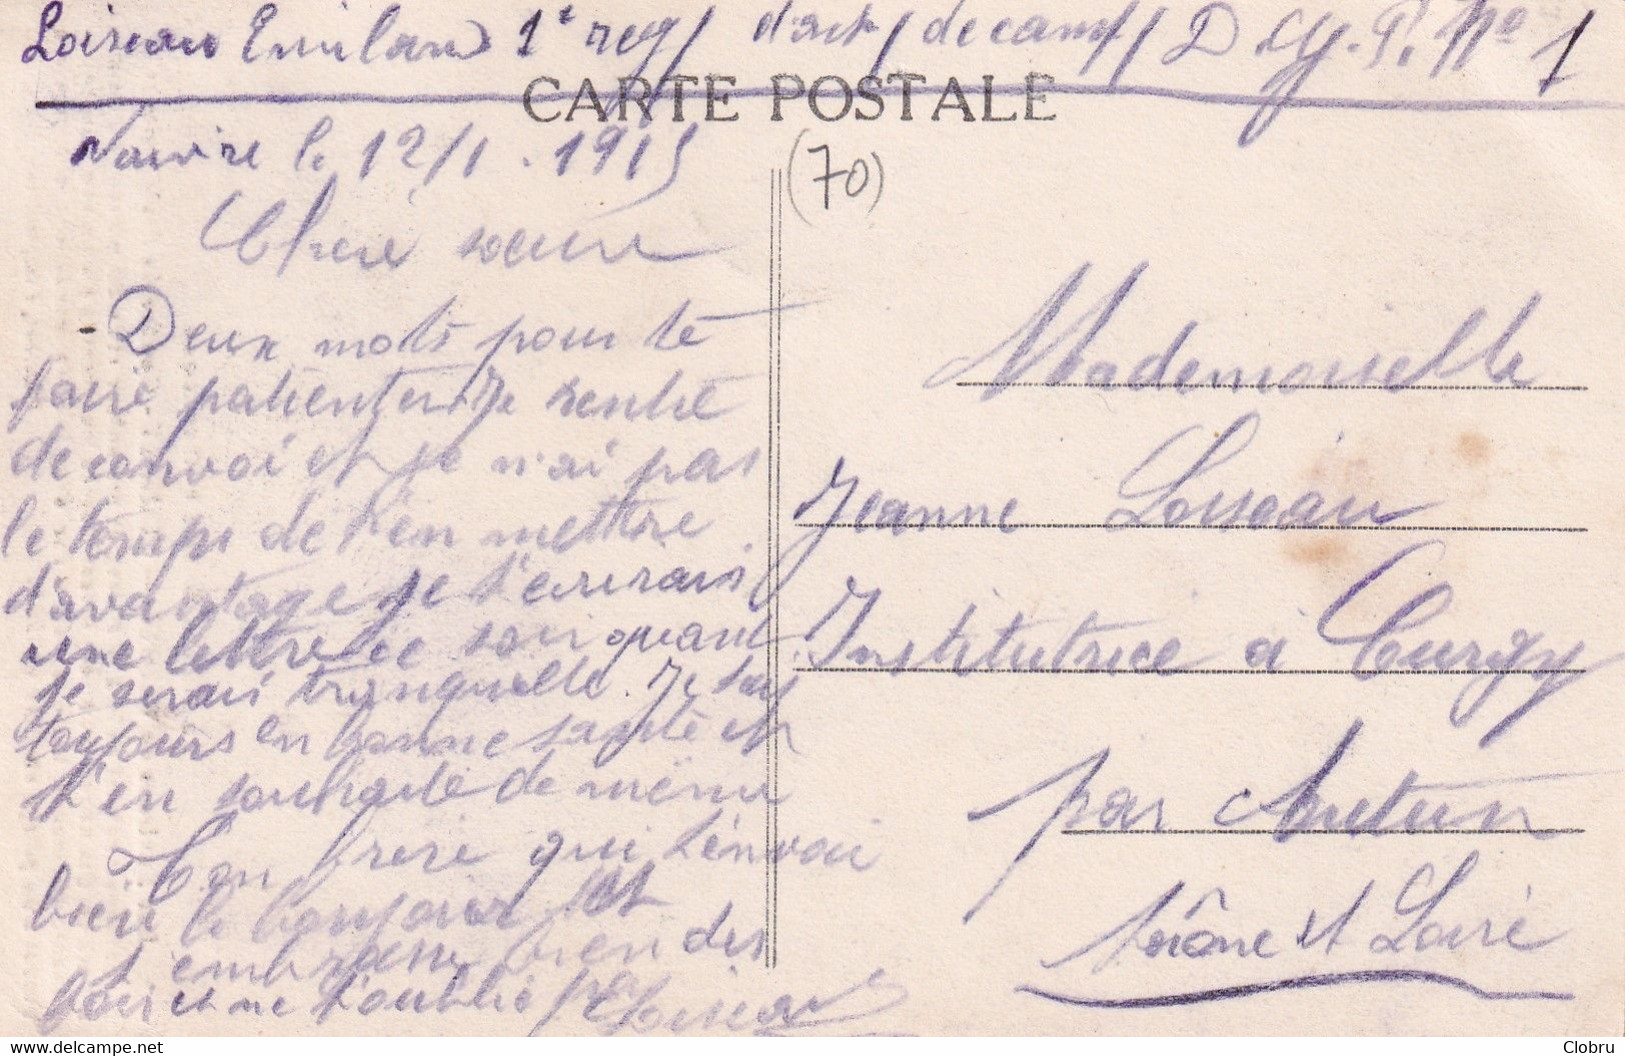 Loiseau Emiland 1e reg/ d'art/ de camp/ D. G. P. No 1
CARTE POSTALE
(70)
Navire le 12/1. 1915
Chère soeur
Deux mots pour te
faire patienter. Je rentre
de convoi et je n'ai pas
le temps de t'en mettre
d'avantage je t'ecrirais
une lettre ce soir quant
je serais tranquille. Je suis
toujours en bonne santé et
t'en souhaite de même
Ton frere qui t'envoi
bien le bonjour et
t'embrasse bien des
fois et ne t'oublie pas
Loiseau
Mademoiselle
Jeanne Loiseau
Institutrice à Curgy
par Autun
Saône et Loire
Clobru